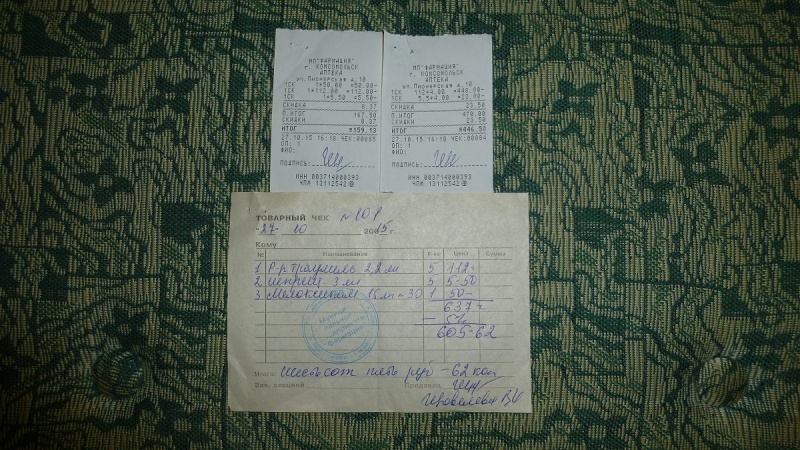 МП"ФАРМАЦИЯ"
г. КОМСОМОЛЬСК
АПТЕКА
ул.Пионерская д.10
1СК 1*50.00 =50.00-
1СК 1*112.00 =112.00-
1СК 1*5.50 =5.50-
СКИДКА 8.37
П.ИТОГ 167.50
СКИДКИ 8.37
ИТОГ =159.13
27.10.15 16:18 ЧЕК:00065
ОП: 1
ФИО:
ПОДПИСЬ:
ИНН 003714000393
ЧПМ 13112542
МП"ФАРМАЦИЯ"
г. КОМСОМОЛЬСК
АПТЕКА
ул.Пионерская д.10
1СК 112*4.00 =448.00-
1СК 5.5*4.00 =22.00-
СКИДКА 23.50
П.ИТОГ 470.00
СКИДКИ 23.50
ИТОГ =446.50
27.10.15 16:18 ЧЕК:00064
ОП: 1
ФИО:
ПОДПИСЬ:
ИНН 003714000393
ЧПМ 13112542
ТОВАРНЫЙ ЧЕК №
27 10 2015 г.
Кому
№ Наименование К-во Цена Сумма
1 Р-р траумель 2,2 мл 5 112=
2 шприц 3 мл 5 5-50
3 Мелоксикам 15 мг №30 1 50-
637=
- 5%
605-62
Итого: шестьсот пять руб - 62 коп
Зав. секцией Продавец